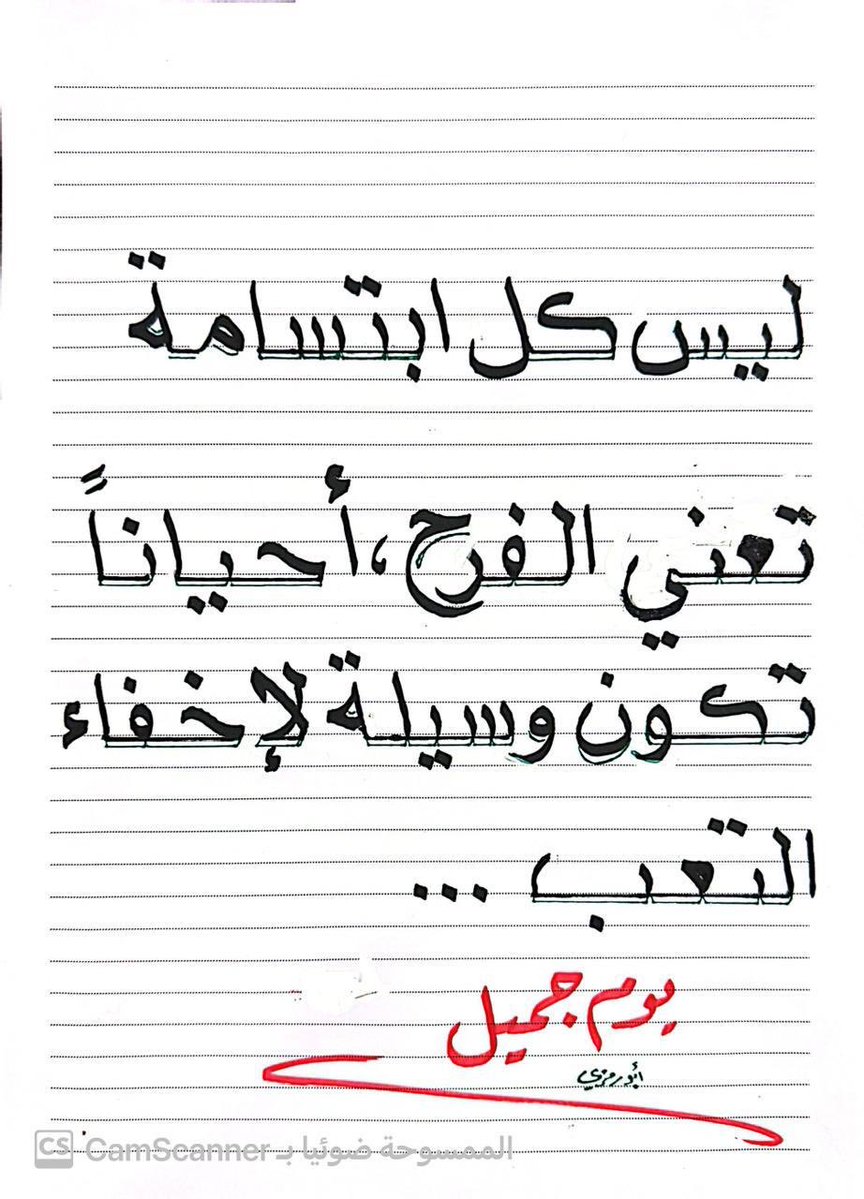 ليس كل ابتسامة
تعني الفرح ،أحياناً
تكون وسيلة لإخفاء
التعب ...
يوم جميل
أبو رمزي
الممسوحة ضوئيا بـ CamScanner
CS